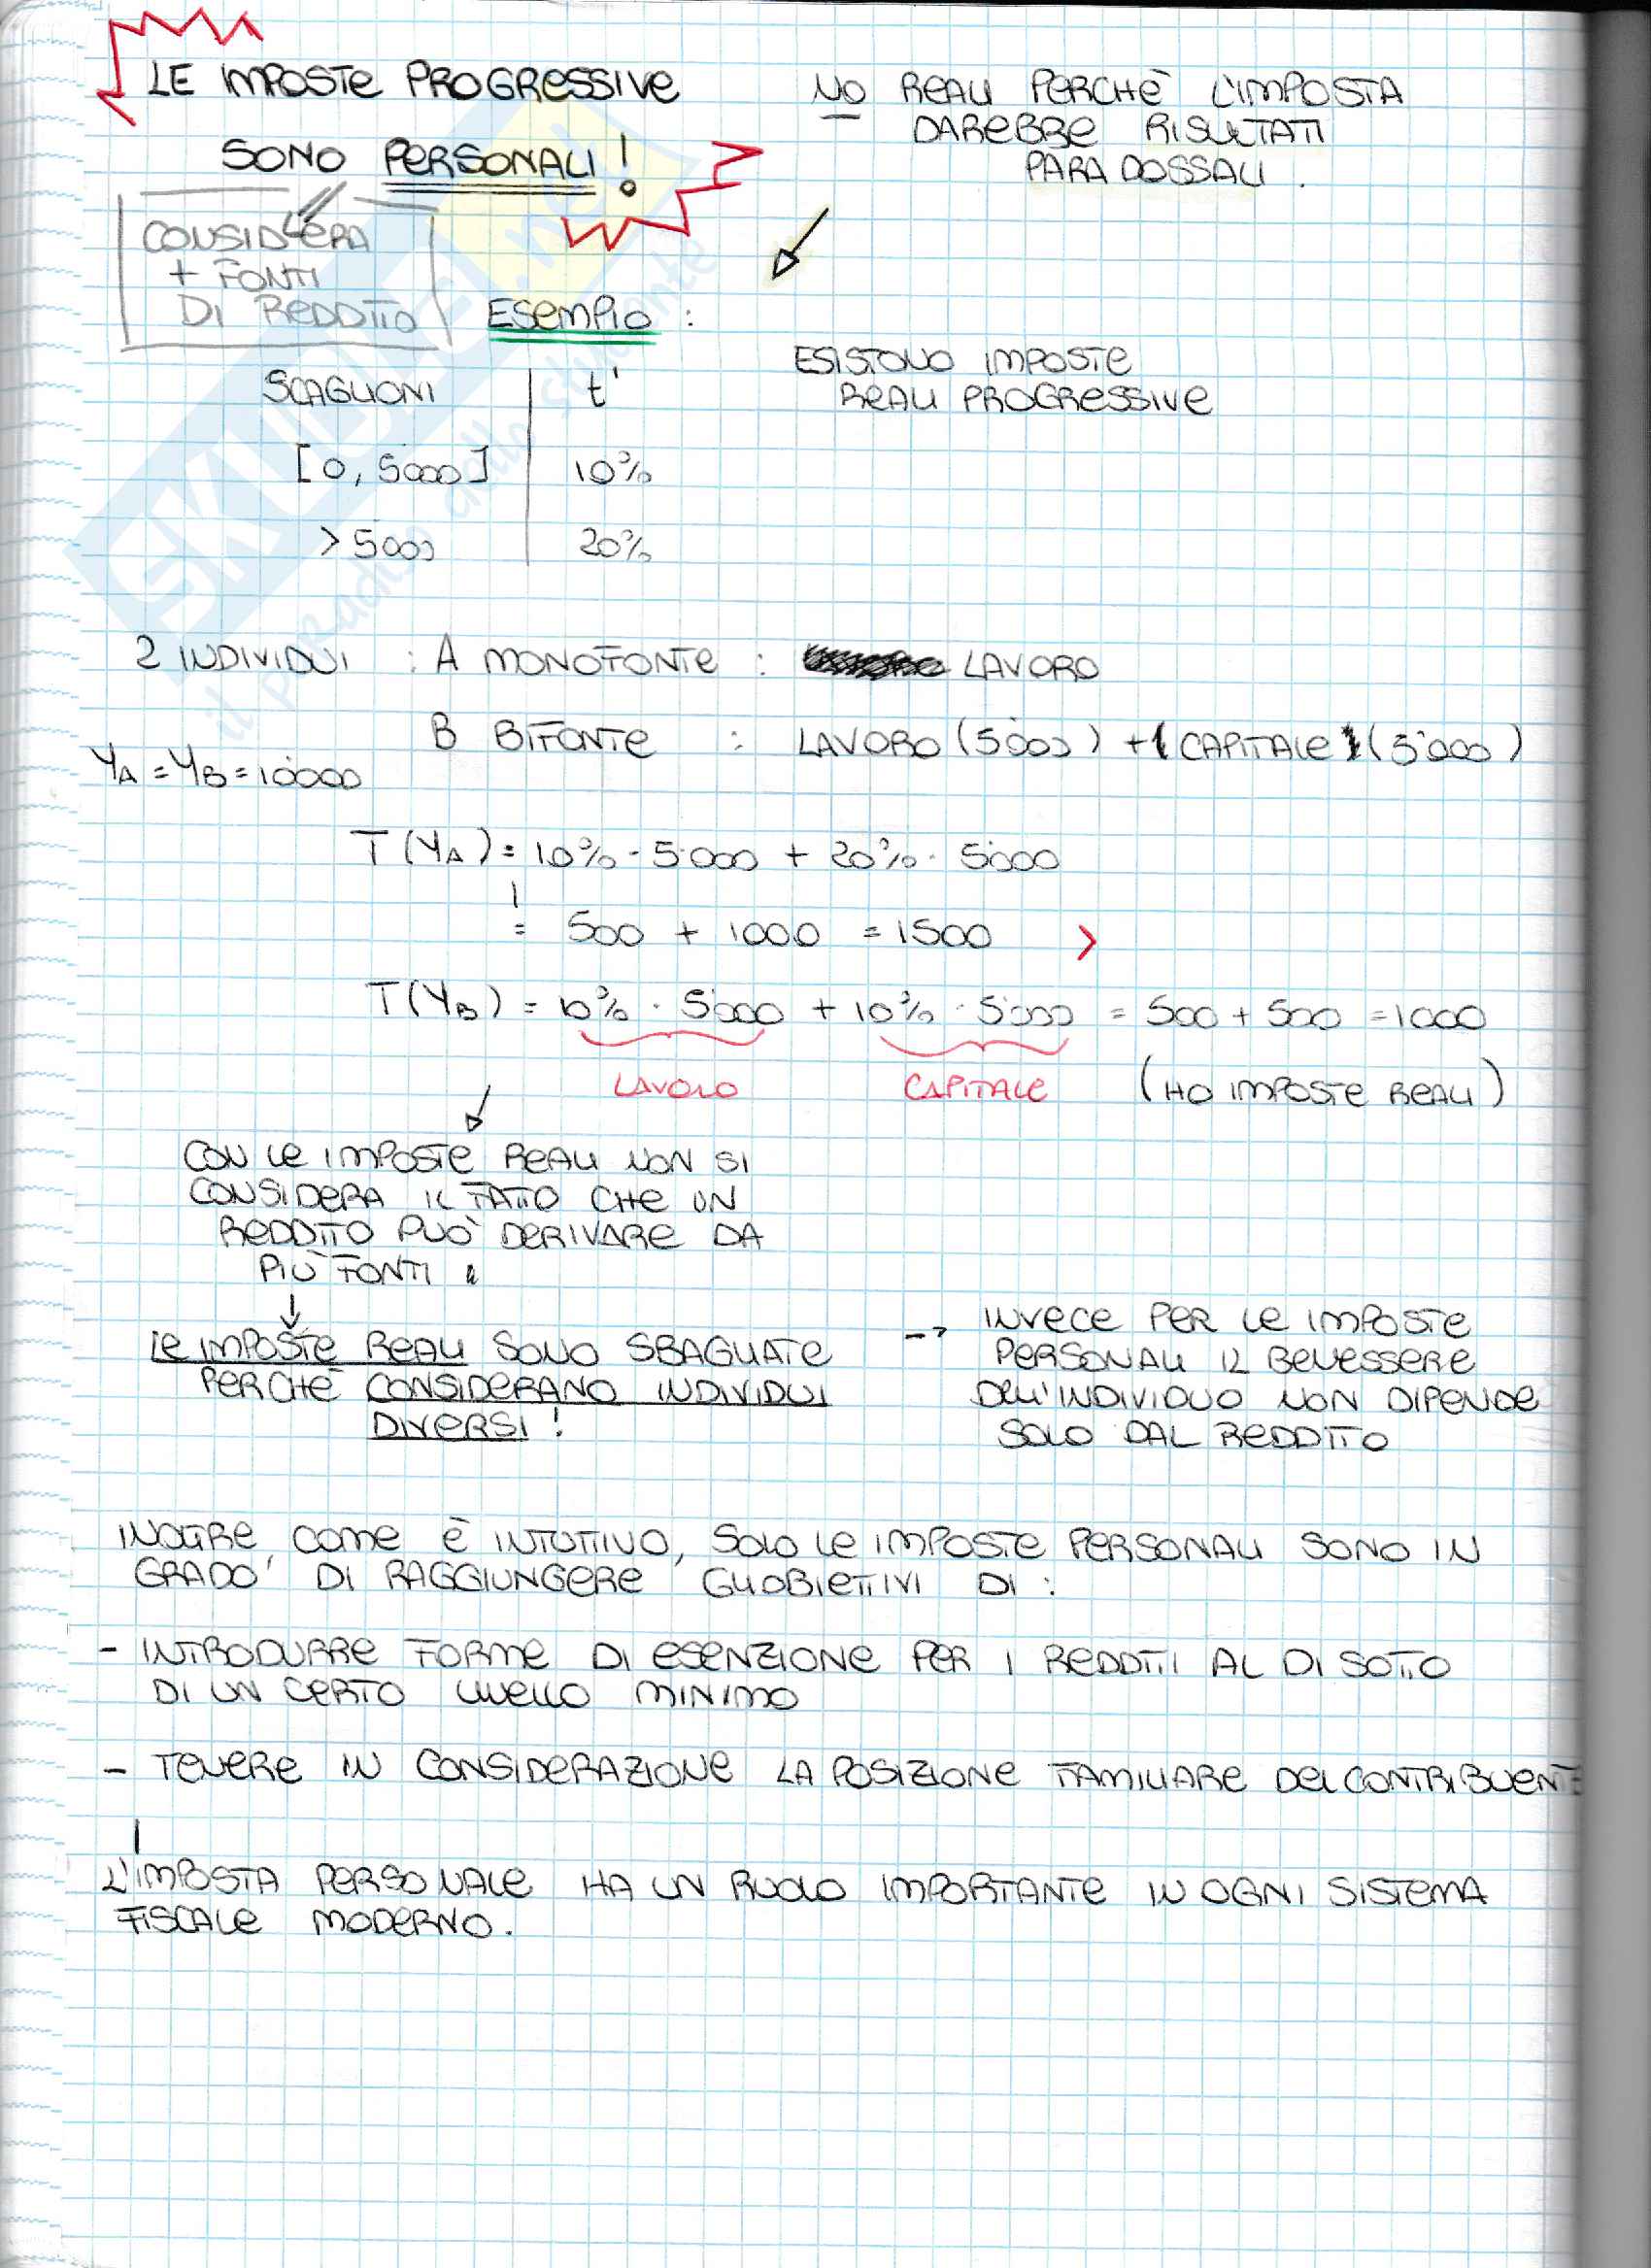 LE IMPOSTE PROGRESSIVE
SONO PERSONALI!
NO REALI PERCHÈ L'IMPOSTA
DAREBBE RISULTATI
PARADOSSALI.
CONSIDERA
+ FONTI
DI REDDITO
ESEMPIO:
ESISTONO IMPOSTE
REALI PROGRESSIVE
SCAGLIONI t'
[0, 5000] 10%
> 5000 20%
2 INDIVIDUI : A MONOFONTE : LAVORO
B BIFONTE : LAVORO (5'000) + (CAPITALE) (5'000)
YA = YB = 10'000
T(YA) = 10% · 5'000 + 20% · 5'000
= 500 + 1000 = 1500 >
T(YB) = 10% · 5'000 + 10% · 5'000 = 500 + 500 = 1000
LAVORO CAPITALE (HO IMPOSTE REALI)
CON LE IMPOSTE REALI NON SI
CONSIDERA IL FATTO CHE UN
REDDITO PUÒ DERIVARE DA
PIÙ FONTI
LE IMPOSTE REALI SONO SBAGLIATE
PERCHÈ CONSIDERANO INDIVIDUI
DIVERSI!
-> INVECE PER LE IMPOSTE
PERSONALI IL BENESSERE
DELL'INDIVIDUO NON DIPENDE
SOLO DAL REDDITO
INOLTRE COME È INTUITIVO, SOLO LE IMPOSTE PERSONALI SONO IN
GRADO' DI RAGGIUNGERE GLI OBIETTIVI DI :
- INTRODURRE FORME DI ESENZIONE PER I REDDITI AL DI SOTTO
DI UN CERTO LIVELLO MINIMO
- TENERE IN CONSIDERAZIONE LA POSIZIONE FAMILIARE DEL CONTRIBUENTE
L'IMPOSTA PERSONALE HA UN RUOLO IMPORTANTE IN OGNI SISTEMA
FISCALE MODERNO.
SKUOLA.net
il paradiso dello studente